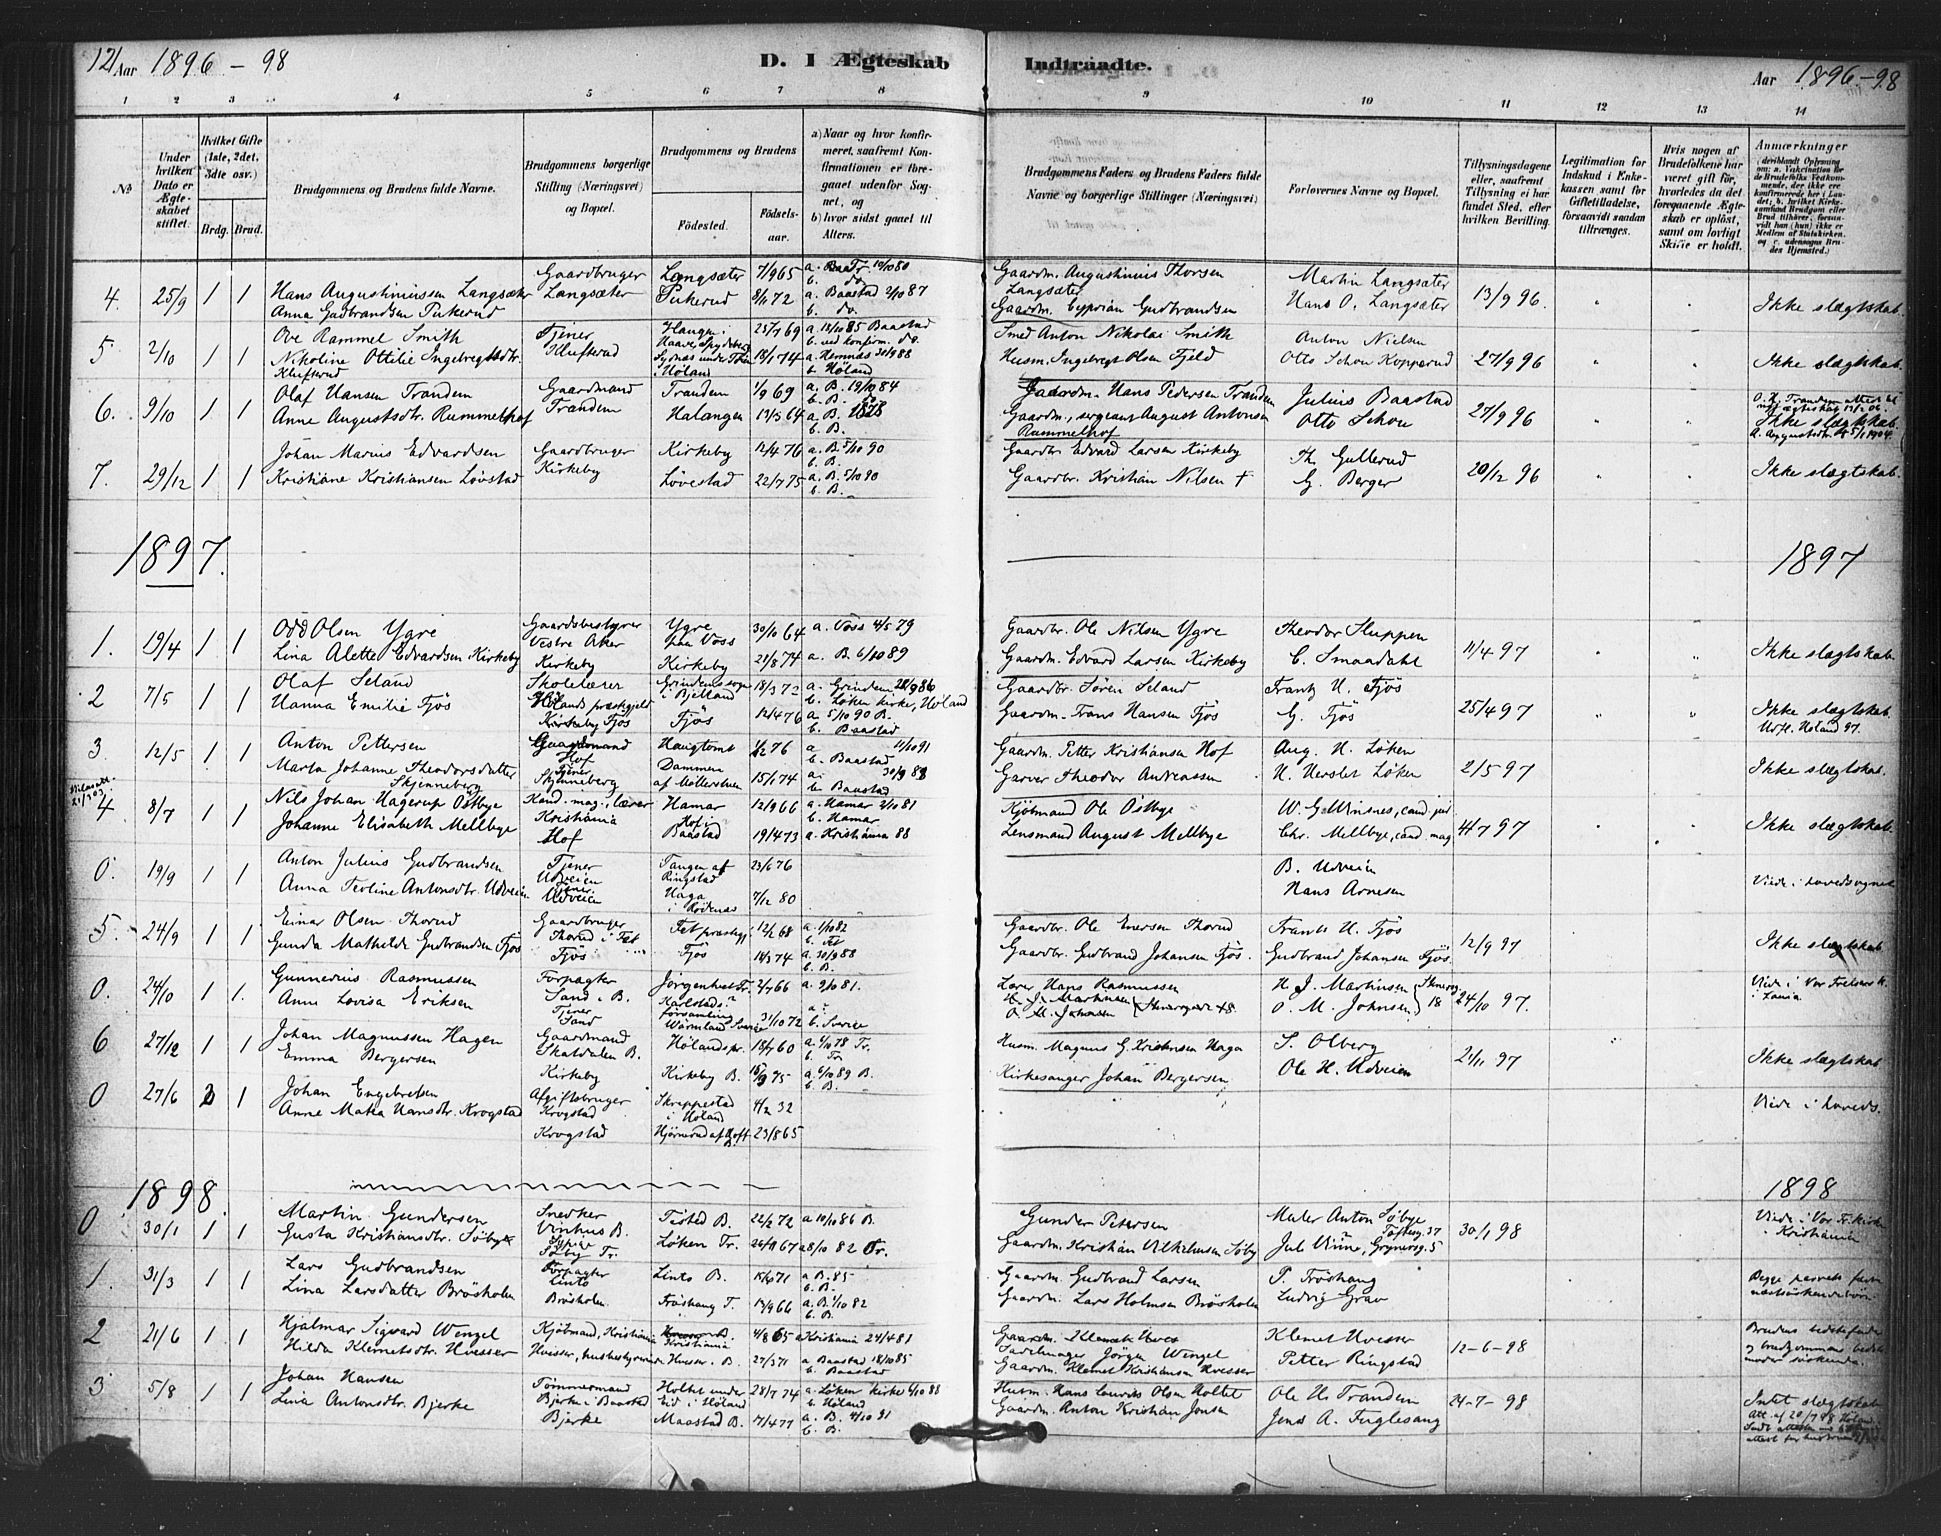 121 Aar 1896 - 98
D. I Ægteskab Indtraadte.
Aar 1896-98
1 2 3 4 5 6 7 8 9 10 11 12 13 14
No
Under hvilken Dato er Ægteskabet stiftet.
Hvilket Gifte (1ste, 2det, 3die osv.)
Brdg. Brud.
Brudgommens og Brudens fulde Navne.
Brudgommens borgerlige Stilling (Næringsvei) og Bopæl.
Brudgommens og Brudens
Fødested. Fødselsaar.
a) Naar og hvor konfirmeret, saafremt Konfirmationen er foregaaet udenfor Sognet, og
b) hvor sidst gaaet til Alters.
Brudgommens Faders og Brudens Faders fulde Navne og borgerlige Stillinger (Næringsvei)
Forlovernes Navne og Bopæl.
Tillysningsdagene eller, saafremt Tillysning ei har fundet Sted, efter hvilken Bevilling.
Legitimation for Indskud i Enkekassen samt for Giftetilladelse, forsaavidt saadan tiltrænges.
Hvis nogen af Brudefolkene har været gift før, hvorledes da det foregaaende Ægteskab er opløst, samt om lovligt Skifte er holdt.
Anmærkninger
4. 25/9 1 1 Hans Augustinussen Langsæter Gaardbruger Langsæter Langsæter 7/9 65 a. Tr. 10/10 80 b. do. Gaardm. Augustinus Thorsen Langsæter Martin Langsæter 13/9 96. Ikke slægtskab.
Anna Gudbrandsen Pukerud Pukerud 8/11 72 a. Baastad 2/10 87 b. do. Gaardm. Cyprian Gudbrandsen Hans O. Langsæter
5 2/10 1 1 Ove Rammel Smith Tjener Klufterud Haugen i 25/7 69 a. 18/10 85 Baastad b. ved konfirm. do. Smed Anton Nikolai Smith Anton Nielsen 27/9 96 Ikke slægtskab.
Nikoline Ottilie Ingebregtsdtr. Klufterud i Høland 18/1 74 a. Hemnæs 30/9 88 b. Høland Husm. Ingebregt Olsen Fjeld Otto Schou Kopperud
6. 9/10 1 1 Olaf Hansen Trandem Gaardmand Trandem Trandem 1/9 69 a. B. 19/10 84 b. B. Gaardm. Hans Pedersen Trandem Julius Baastad 27/9 96 Ikke slægtskab.
Anne Augustsdtr. Rammelhof Halangen 13/5 64 a. B. 1878 b. B. Gaardm., sergeant August Antonsen Rammelhof Otto Schou
7. 29/12 1 1 Johan Marius Edvardsen Gaardbruger Kirkeby Kirkeby 12/4 76 a. B. 5/10 90 b. B. Gaardbr. Edvard Larsen Kirkeby Th. Gullerud 20/12 96 Ikke slægtskab.
Kristiane Kristiansen Løvstad Løvestad 22/7 75 a. B. 5/10 90 b. B. Gaardbr. Kristian Nilsen † G. Berger
1897. 1897
1. 19/4 1 1 Odd Olsen Ygre Gaardsbestyrer Vestre Aker Ygre paa Voss 30/10 64 a. Voss 4/5 79 Gaardbr. Ole Nilsen Ygre Theodor Sluppen 11/4 97 Ikke slægtskab.
Lina Alette Edvardsen Kirkeby Kirkeby Kirkeby 21/8 74 a. B. 6/10 89 Gaardm. Edvard Larsen Kirkeby C. Smaadahl
2 7/5 1 1 Olaf Seland Skolelærer Hølands præstegjeld Grindems sogn i Bjelland 18/3 72 a. Grindem 26/9 86 b. Løken kirke, Høland Gaardbr. Søren Seland Frantz H. Fjøs 25/4 97 Ikke slægtskab.
Hanna Emilie Fjøs Fjøs Fjøs 12/4 76 a. 5/10 90 B. b. Baastad Gaardm. Frans Hansen Fjøs G. Fjøs Udfl. Høland 97.
3. 12/5 1 1 Anton Pettersen Gaardmand Hof Haugtomt 1/2 76 a. 11/10 91 b. Baastad Gaardm. Petter Kristiansen Hof Aug. H. Løken 2/5 97 Ikke slægtskab.
Marta Johanne Theodorsdatter Skjenneberg Tjener Skjenneberg Dammen af Møllerstuen 15/1 74 a. 30/9 88 b. Baastad Garver Theodor Andreassen H. Herslet Løken
4 8/7 1 1 Nils Johan Hagerup Østbye Kand. mag., lærer Kristiania Hamar 12/9 66 a. Hamar 2/10 81 b. Hamar Kjøbmand Ole Østbye W. G. Minsnes, cand. jur. 4/7 97 Ikke slægtskab.
Johanne Elisabeth Mellbye Hof Hof i Baastad 19/4 73 a. Kristiania 88 Lensmand August Mellbye Chr. Mellbye, cand. mag.
0. 19/9 1 1 Anton Julius Gudbrandsen Tjener Udveien Tangen af Ringstad 23/6 76 B. Udveien Viede i hovedsognet
Anna Teoline Antonsdtr. Udveien Tjener. Udveien Haga i Rødenæs 7/12 80 Hans Arnesen
5. 24/9 1 1 Einar Olsen Thorud Gaardbruger Thorud i Fet Fet præstegj. 12/2 68 a. 1/10 82 b. Fet Gaardbr. Ole Enersen Thorud Frants H. Fjøs 12/9 97 Ikke slægtskab.
Gunda Mathilde Gudbrandsen Fjøs Fjøs Fjøs 14/3 74 a. 30/9 88 b. B. Gaardbr. Gudbrand Johansen Fjøs. Gudbrand Johansen Fjøs.
0. 24/10 1 1. Gunnerius Rasmussen Forpagter Sand i B. Jørgenhvet Tr. 2/7 66 a. 9/10 81. Lærer Hans Rasmussen H. J. Martinsen 24/10 97. Viede i Vor Frelsers k.
Anne Lovisa Eriksen Tjener Sand Karlstads församling Wärmland Sverige 31/10 72 a. b. Sverige O. M. Johnsen
6 27/12 1 1 Johan Magnussen Hagen Gaardmand Skaldalen B. Hølands pr. 18/7 60 a. 6/10 78 Tr. b. Tr. Husm. Magnus G. Kristensen Haga S. Olberg 21/11 97 Ikke slægtskab
Emma Bergersen Kirkeby Kirkeby B. 15/9 75 a. 6/10 89 B. b. B. Kirkesanger Johan Bergersen Ole H. Udveien
0 27/6 2 1 Johan Engebretsen Afgiftsbruger Krogstad Skreppestad i Høland 4/2 32 Viede i hoveds.
Anne Matea Hansdtr. Krogstad Krogstad 23/8 65
1898. 1898
0. 30/1 1 1 Martin Gundersen Snedker Vinhus B. Tisted B. 22/2 72 a 10/10 86 B. Gunder Petersen Maler Anton Søbye Toftesg. 37 30/1 98 Viede i Vor Fr. kirke i Kristiania
Gusta Kristiansdtr. Søbye Sypige Søby Tr. Løken Tr. 26/11 67 a 8/10 82 Tr. Gaardm. Kristian Vilhelmsen Søby Jul Vinne, Grynersg. 5
1. 31/3 1 1 Lars Gudbrandsen Forpagter Linto Linto B. 71 a B. 85 b. B. Gaardm. Gudbrand Larsen P. Trøshaug
Lina Larsdatter Brøsholen Brøsholen Trøshaug T. 17/9 66 a. B. 1/10 82 b. B. Gaardm. Lars Holmsen Brøsholen Ludvig Grav
2 21/6 1 1 Hjalmar Sigvard Wengel Kjøbmand, Kristiania Kristiania 4/8 65 a Kristiania 24/4 81 Sadelmager Jørgen Wengel Klemet Hvesser 12-6-98
Hilda Klemetsdtr. Hvesser Hvesser, husbestyrerinde Hvesser. B. 27/3 71 a. Baastad 18/10 85 b. Baastad Gaardm. Klemet Kristiansen Hvesser Petter Ringstad
3 5/8 1 1 Johan Hansen Tømmermand Bjerke i Baastad Holtet under Eid i Høland 28/7 74 a. Løken kirke 6/10 88 b. Høland Husm. Hans Laurits Olsen Holtet Ole H. Tranden 24-7-98 Intet slægtskab.
Lina Antonsdtr. Bjerke Bjerke Maastad B. 7/4 77 a. B. 4/10 91 b. B. Gaardm. Anton Kristian Jensen Jens A. Fuglesang